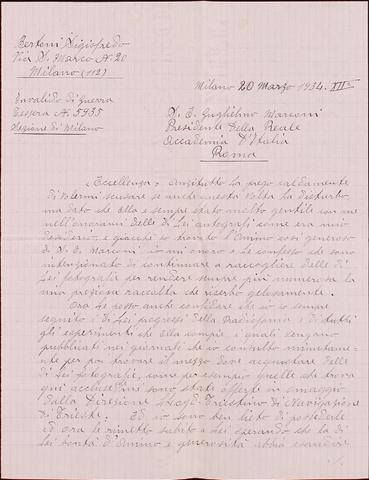 Bertoni Sigisfredo
Via S. Marco N. 20
Milano (112)
Milano 20 Marzo 1934. XII°
Invalido di Guerra
Tessera N. 5935
Sezione di Milano
S. E. Guglielmo Marconi
Presidente Della Reale
Accademia D'Italia
Roma
Eccellenza anzitutto La prego caldamente
di volermi scusare se anche questa volta La disturbo
ma dato che Ella è sempre stato molto gentile con me
nell'onorarmi delle di Lei autografi come era mio
desiderio e giacchè io trovato l'animo così generoso
di S. E. Marconi mi onoro e Le confesso che sono
intenzionato di continuare a raccogliere delle di
Lei fotografie per rendere sempre più numerosa la
mia preziosa raccolta che riserbo gelosamente.
Ora Le posso anche confidare che io sempre
seguito i di Lei progressi della Radiofonia e di tutti
gli esperimenti che Ella compie i quali vengono
pubblicati nei giornali che io consulto minutamen-
te per poi trovare il mezzo dove acquistare delle
di Lei fotografie, come per esempio quelle che trova
qui accluse mi sono state offerte in omaggio
dalla Direzione Triestino di Navigazione
di Trieste. Ed io sono ben lieto di possederle
ed ora le rimetto subito a Lei sperando che la di
Lei bontà d'animo e generosità abbia esaudire